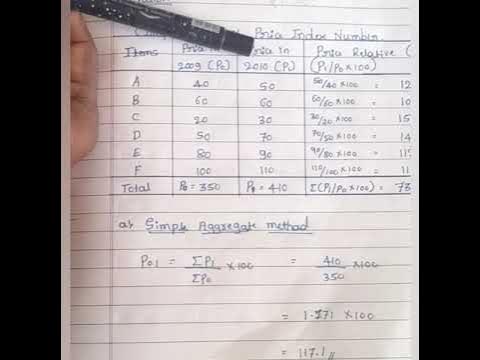 Price Index Number
Items Price in Price in Price Relative (
2009 (P0) 2010 (P1) (P1/P0 x100)
A 40 50 50/40 x100 = 12
B 60 60 60/60 x100 = 10
C 20 30 30/20 x100 = 15
D 50 70 70/50 x100 = 14
E 80 90 90/80 x100 = 11
F 100 110 110/100 x100 = 11
Total P0 = 350 P1 = 410 Σ(P1/P0 x100) = 73
a) Simple Aggregate method
P01 = ΣP1/ΣP0 x100 = 410/350 x100
= 1.171 x100
= 117.1 //